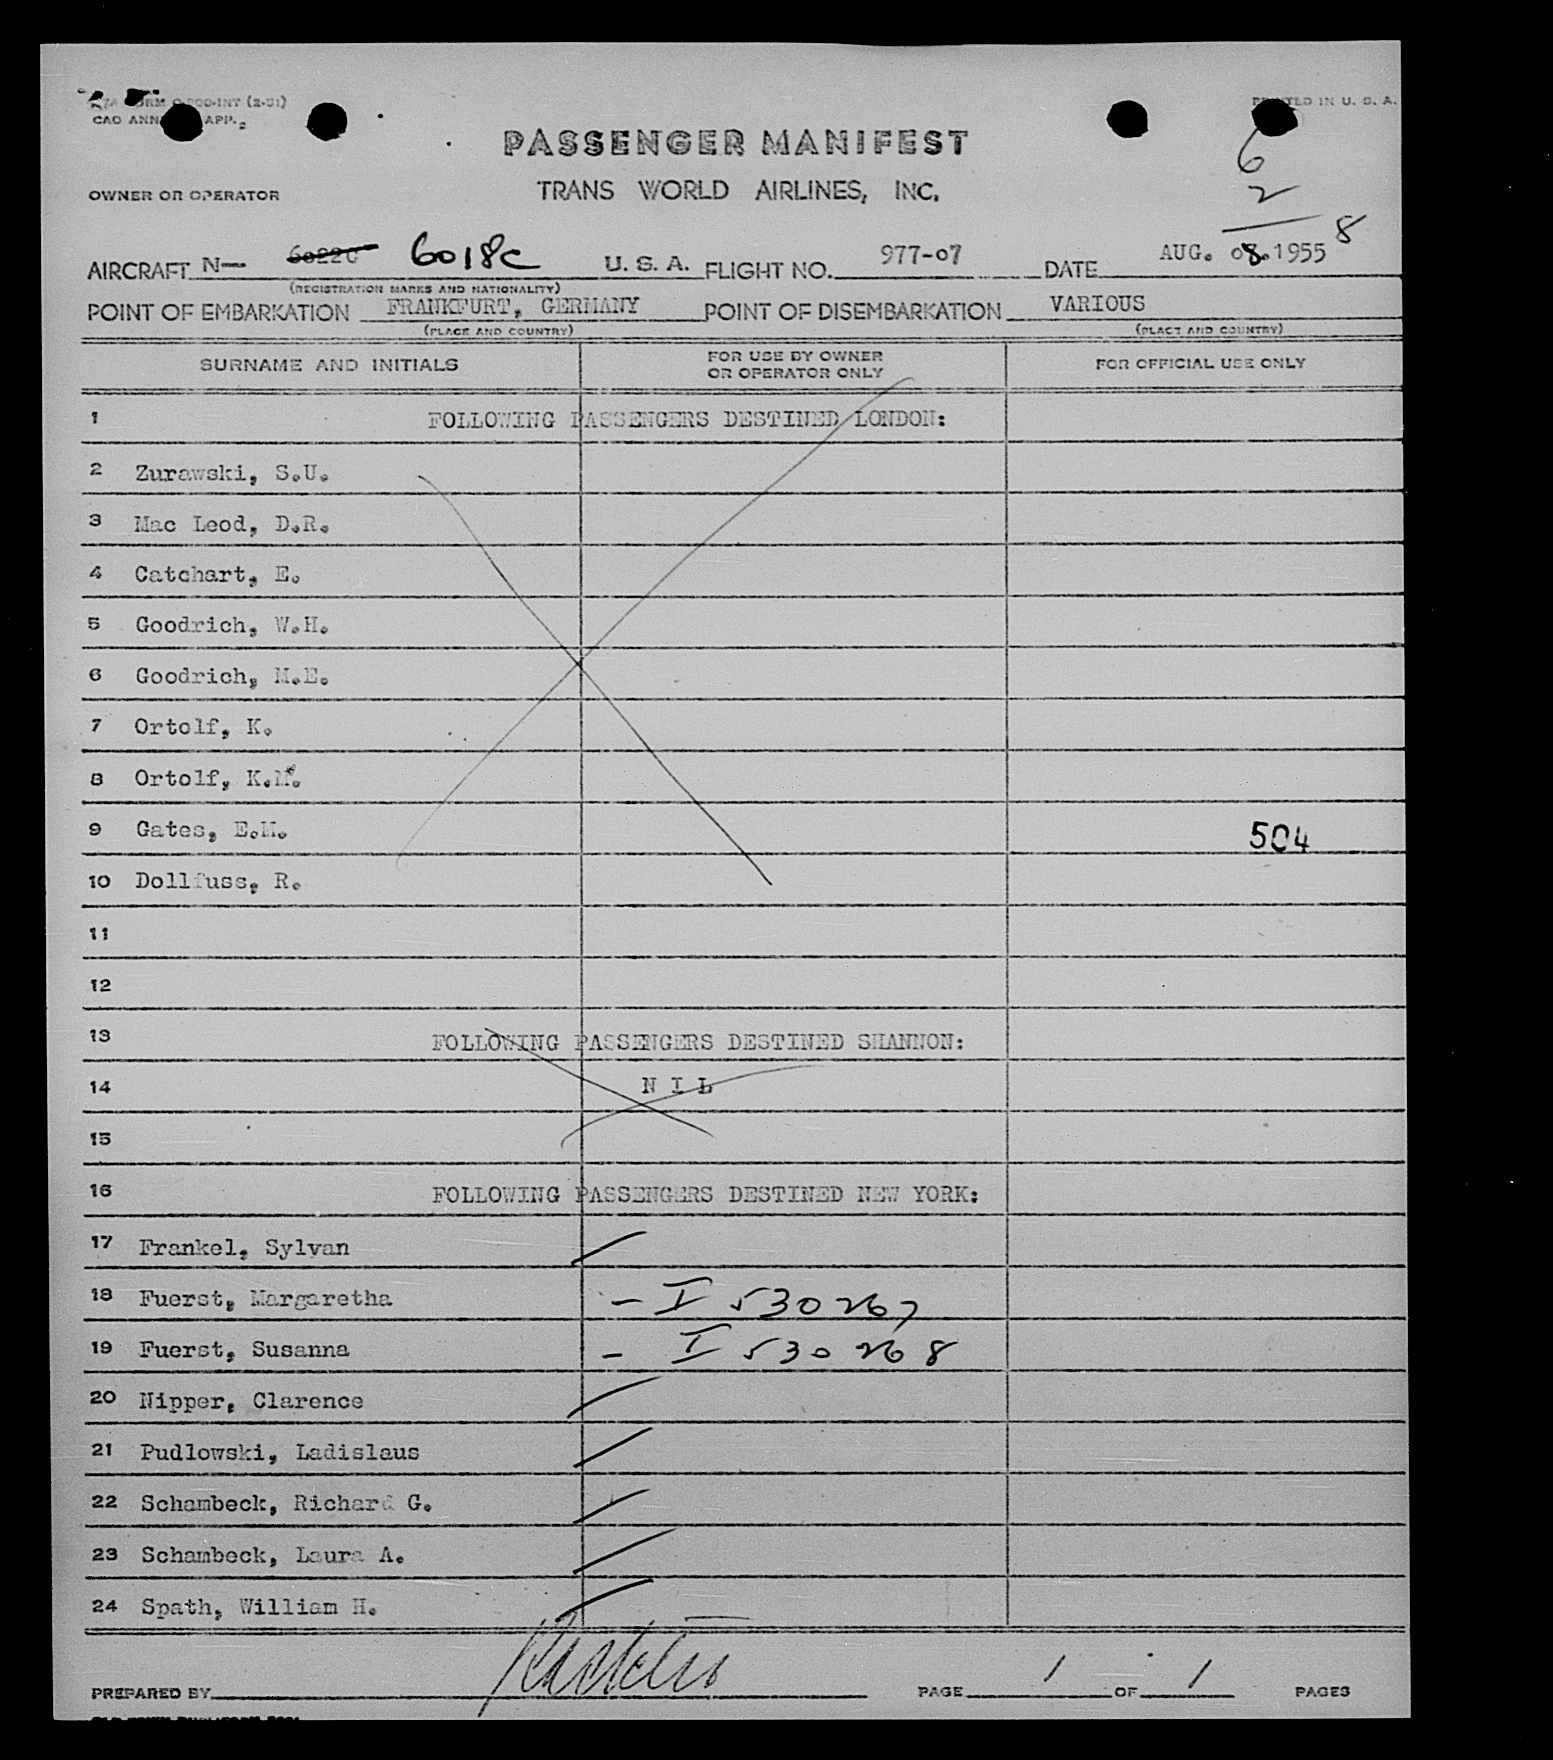 FORM O-200-INT (2-51)
CAO ANN APP. 2
PRINTED IN U. S. A.
PASSENGER MANIFEST
6
OWNER OR OPERATOR
TRANS WORLD AIRLINES, INC.
2
8
AIRCRAFT N— 6022C 6018C U. S. A. FLIGHT NO. 977-07 DATE AUG. 08. 1955
(REGISTRATION MARKS AND NATIONALITY)
POINT OF EMBARKATION FRANKFURT, GERMANY POINT OF DISEMBARKATION VARIOUS
(PLACE AND COUNTRY) (PLACE AND COUNTRY)
SURNAME AND INITIALS FOR USE BY OWNER OR OPERATOR ONLY FOR OFFICIAL USE ONLY
1 FOLLOWING PASSENGERS DESTINED LONDON:
2 Zurawski, S.U.
3 Mac Leod, D.R.
4 Catchart, E.
5 Goodrich, W.H.
6 Goodrich, M.E.
7 Ortolf, K.
8 Ortolf, K.M.
9 Gates, E.M. 504
10 Dollfuss, R.
11
12
13 FOLLOWING PASSENGERS DESTINED SHANNON:
14 N I L
15
16 FOLLOWING PASSENGERS DESTINED NEW YORK:
17 Frankel, Sylvan
18 Fuerst, Margaretha – I 530267
19 Fuerst, Susanna – I 530268
20 Nipper, Clarence
21 Pudlowski, Ladislaus
22 Schambeck, Richard G.
23 Schambeck, Laura A.
24 Spath, William H.
PREPARED BY PAGE 1 OF 1 PAGES